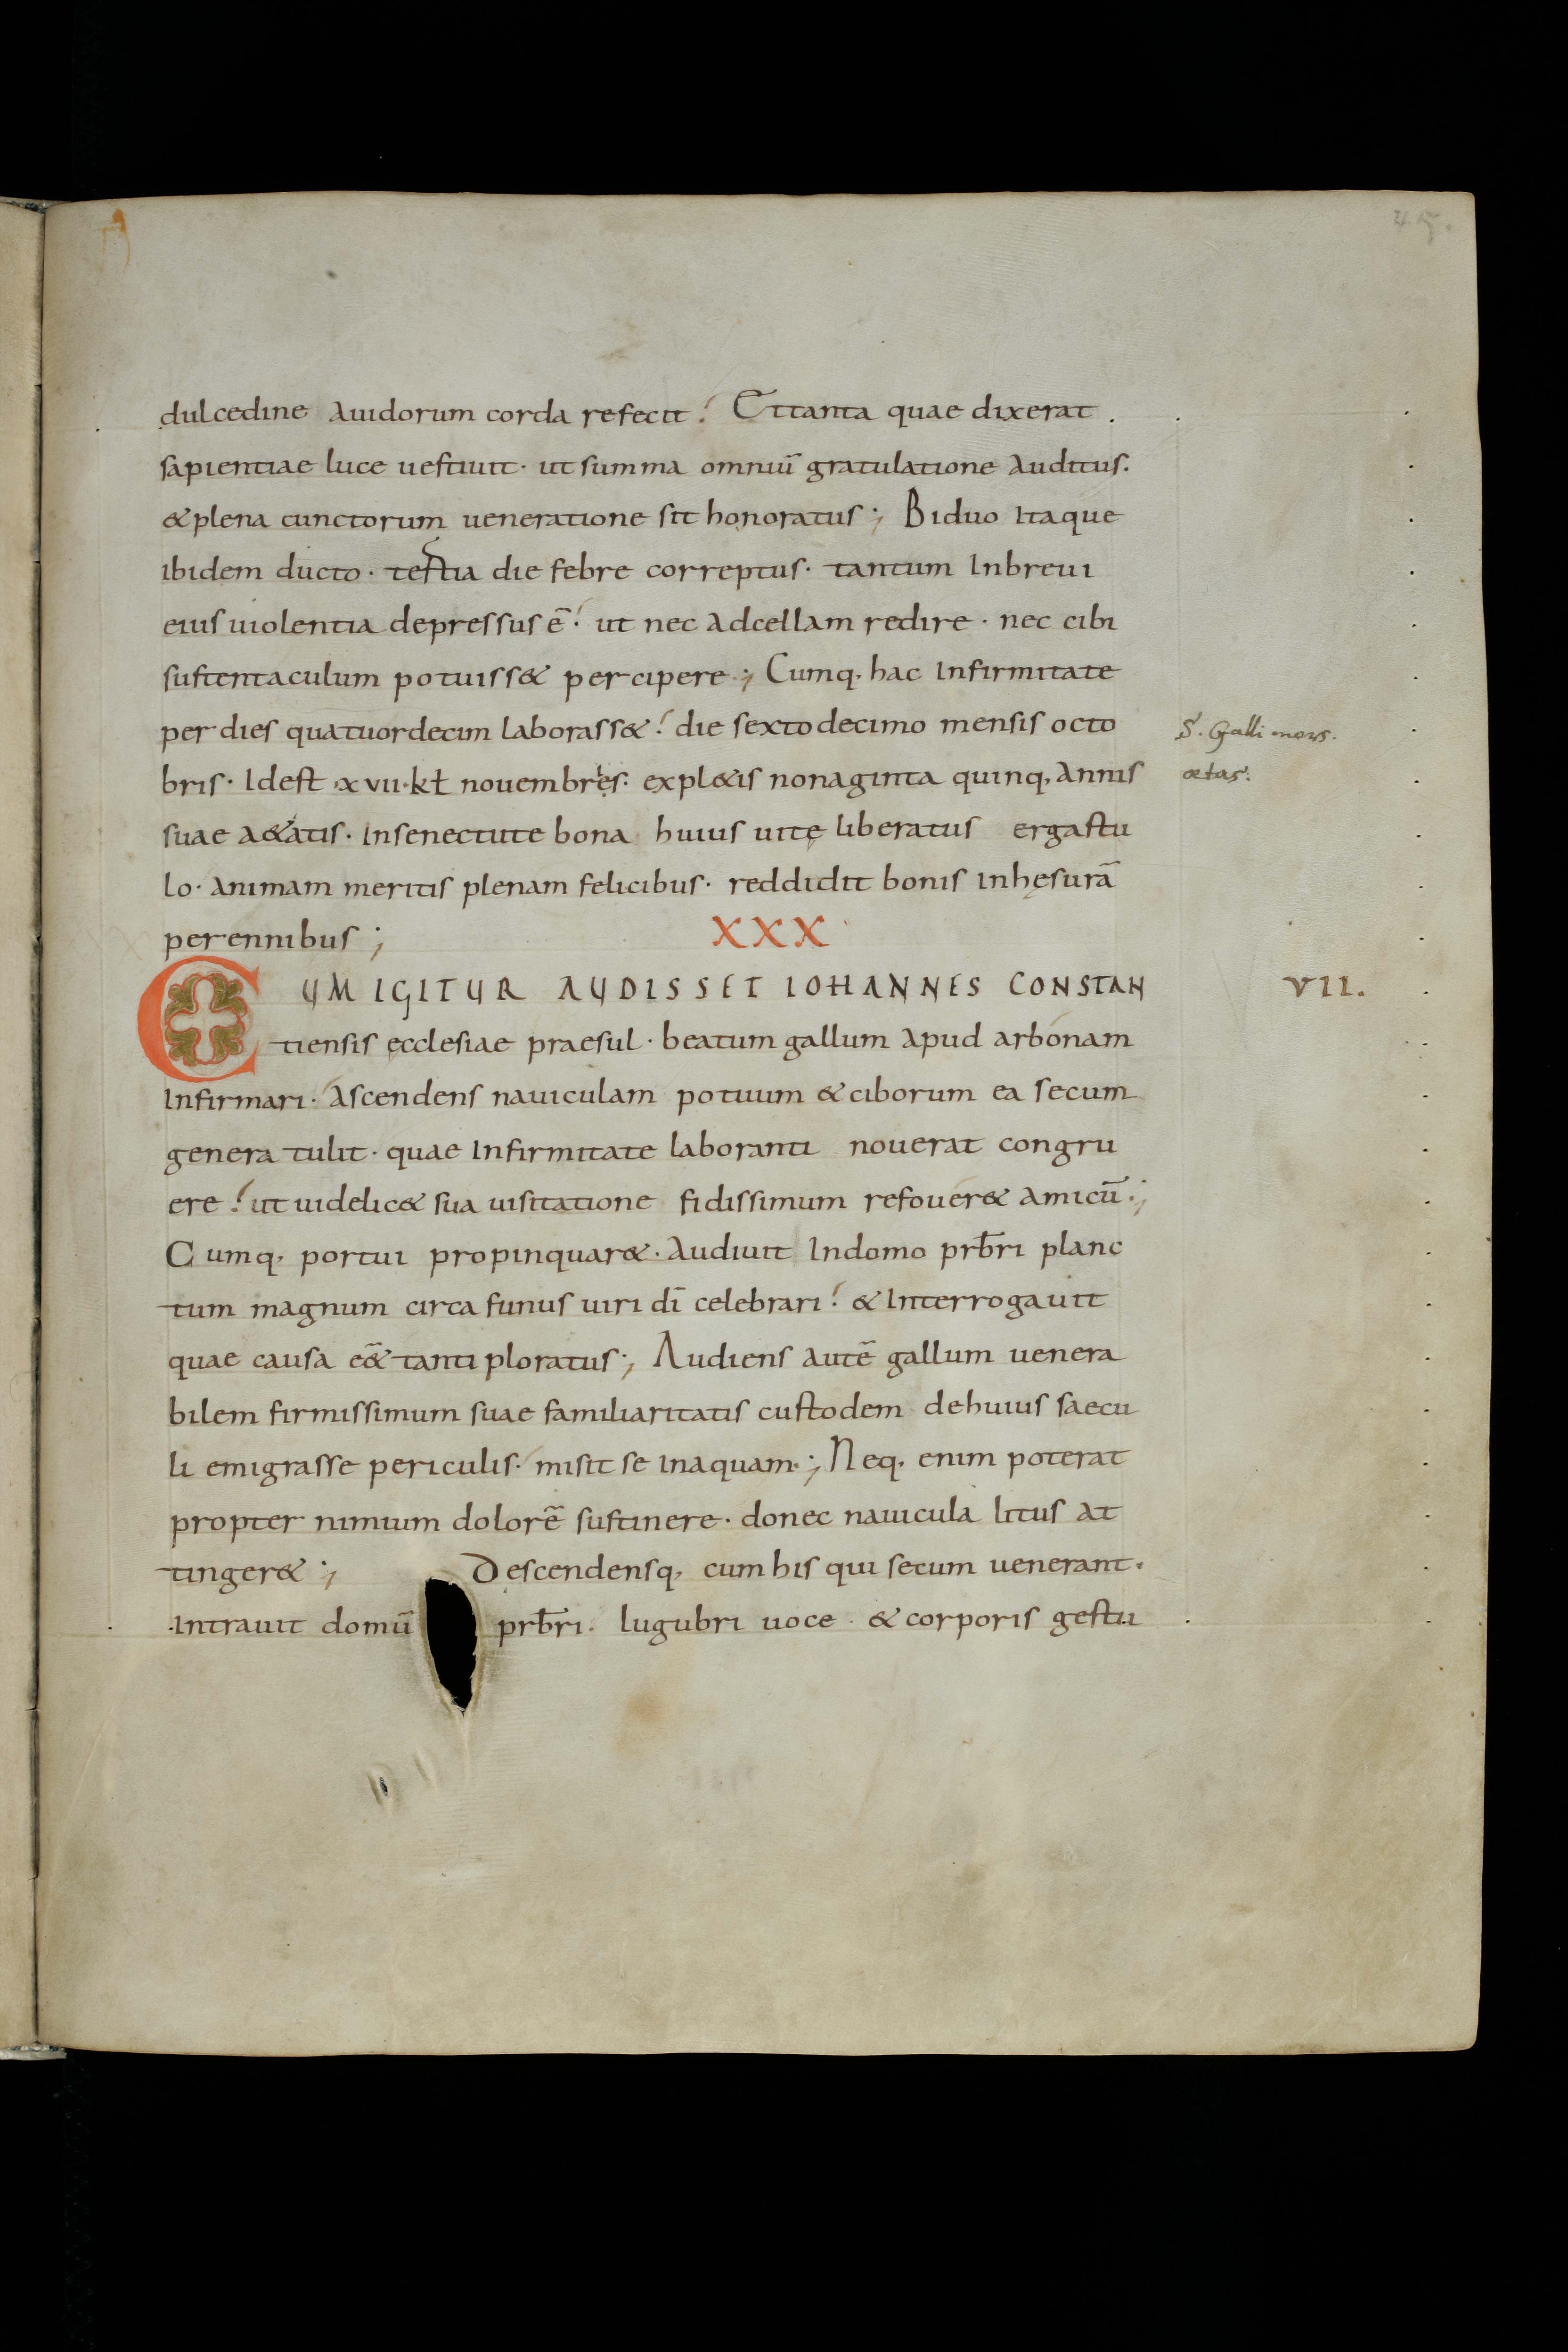 45.
dulcedine auidorum corda refecit. Et tanta quae dixerat
sapientiae luce uestiuit · ut summa omniū gratulatione auditus.
& plena cunctorum ueneratione sit honoratus; Biduo itaque
ibidem ducto · testia die febre correptus · tantum inbreui
eius uiolentia depressus ē · ut nec adcellam redire · nec cibi
sustentaculum potuiss& percipere; Cumq, hac infirmitate
per dies quatuordecim laborass& · die sexto decimo mensis octo
S. Galli mors.
bris · Idest · xvii · kł nouembres · expl&is nonaginta quinq, annis
ætas.
suae a&atis · Insenectute bona huius uitę liberatus ergastu
lo · animam meritis plenam felicibus · reddidit bonis inhęsurā
perennibus; XXX
CUM IGITUR AUDISSET IOHANNES CONSTAN
VII.
tiensis ęcclesiae praesul · beatum gallum apud arbonam
Infirmari · ascendens nauiculam potuum & ciborum ea secum
genera tulit · quae infirmitate laboranti nouerat congru
ere · ut uidelic& sua uisitatione fidissimum refouer& amicū;
Cumq, portui propinquar& · audiuit indomo prb̄ri planc
tum magnum circa funus uiri dī celebrari · & interrogauit
quae causa e&̄ tanti ploratus; Audiens autē gallum uenera
bilem firmissimum suae familiaritatis custodem dehuius saecu
li emigrasse periculis · misit se inaquam; Neq, enim poterat
propter nimium dolorē sustinere · donec nauicula litus at
tinger&; Descendensq, cum his qui secum uenerant ·
intrauit domū prb̄ri · lugubri uoce · & corporis gestu